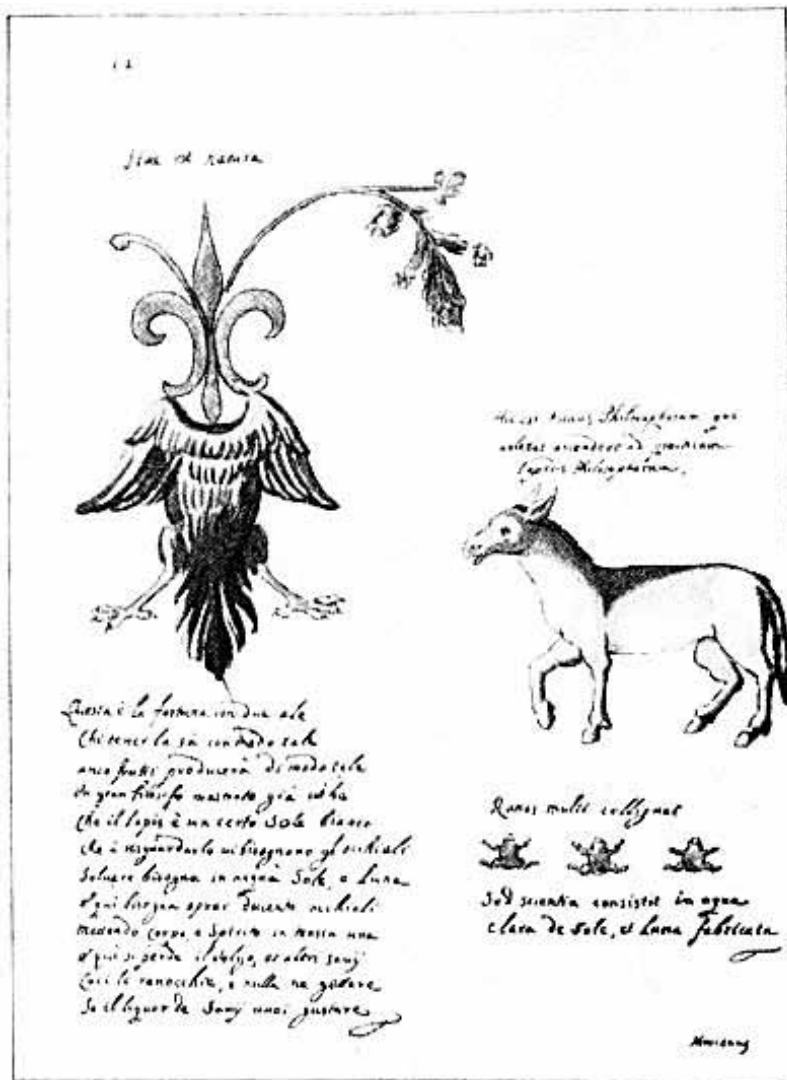 est natura
Hic est Asinus Philosophorum qui
ascendere ad practicam
lapidis Philosophorum.
Questa è la fortuna con due ale
Chi tener la sà con modo tale
anco frutti producerà di modo tale
gran filosofo mostrato già
Che il lapis è un certo Sole bianco
Che à risguardarlo ui bisognono gl occhiali
Soluere bisogna in acqua Sole, e Luna
e qui bisogna oprar ducento occhiali
Corpo, e Spirito in massa una
e qui si perde il volgo, et altri
Coci le ranocchie, e nulla ne
Se il liquor de Savij vuoi gustare
Ranas multi colligunt
Sed scientia consistit in aqua
clara de Sole, et Luna fabricata